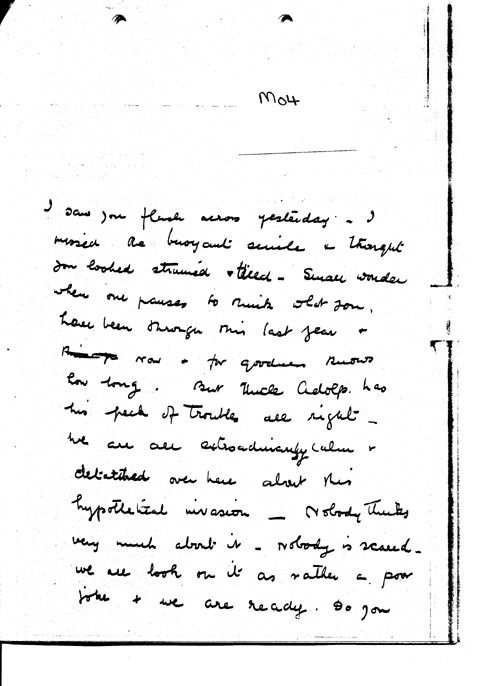 M04
I saw you flash across yesterday - I
missed the buoyant smile & thought
you looked strained & tired - Small wonder
when one pauses to think what you,
have been through this last year &
now & for goodness knows
how long. But Uncle Adolp. has
his peck of troubles all right -
We are all extraordinarily calm &
detatched over here about this
hypothetical invasion - Nobody thinks
very much about it - Nobody is scared -
we all look on it as rather a poor
joke & we are ready. Do you